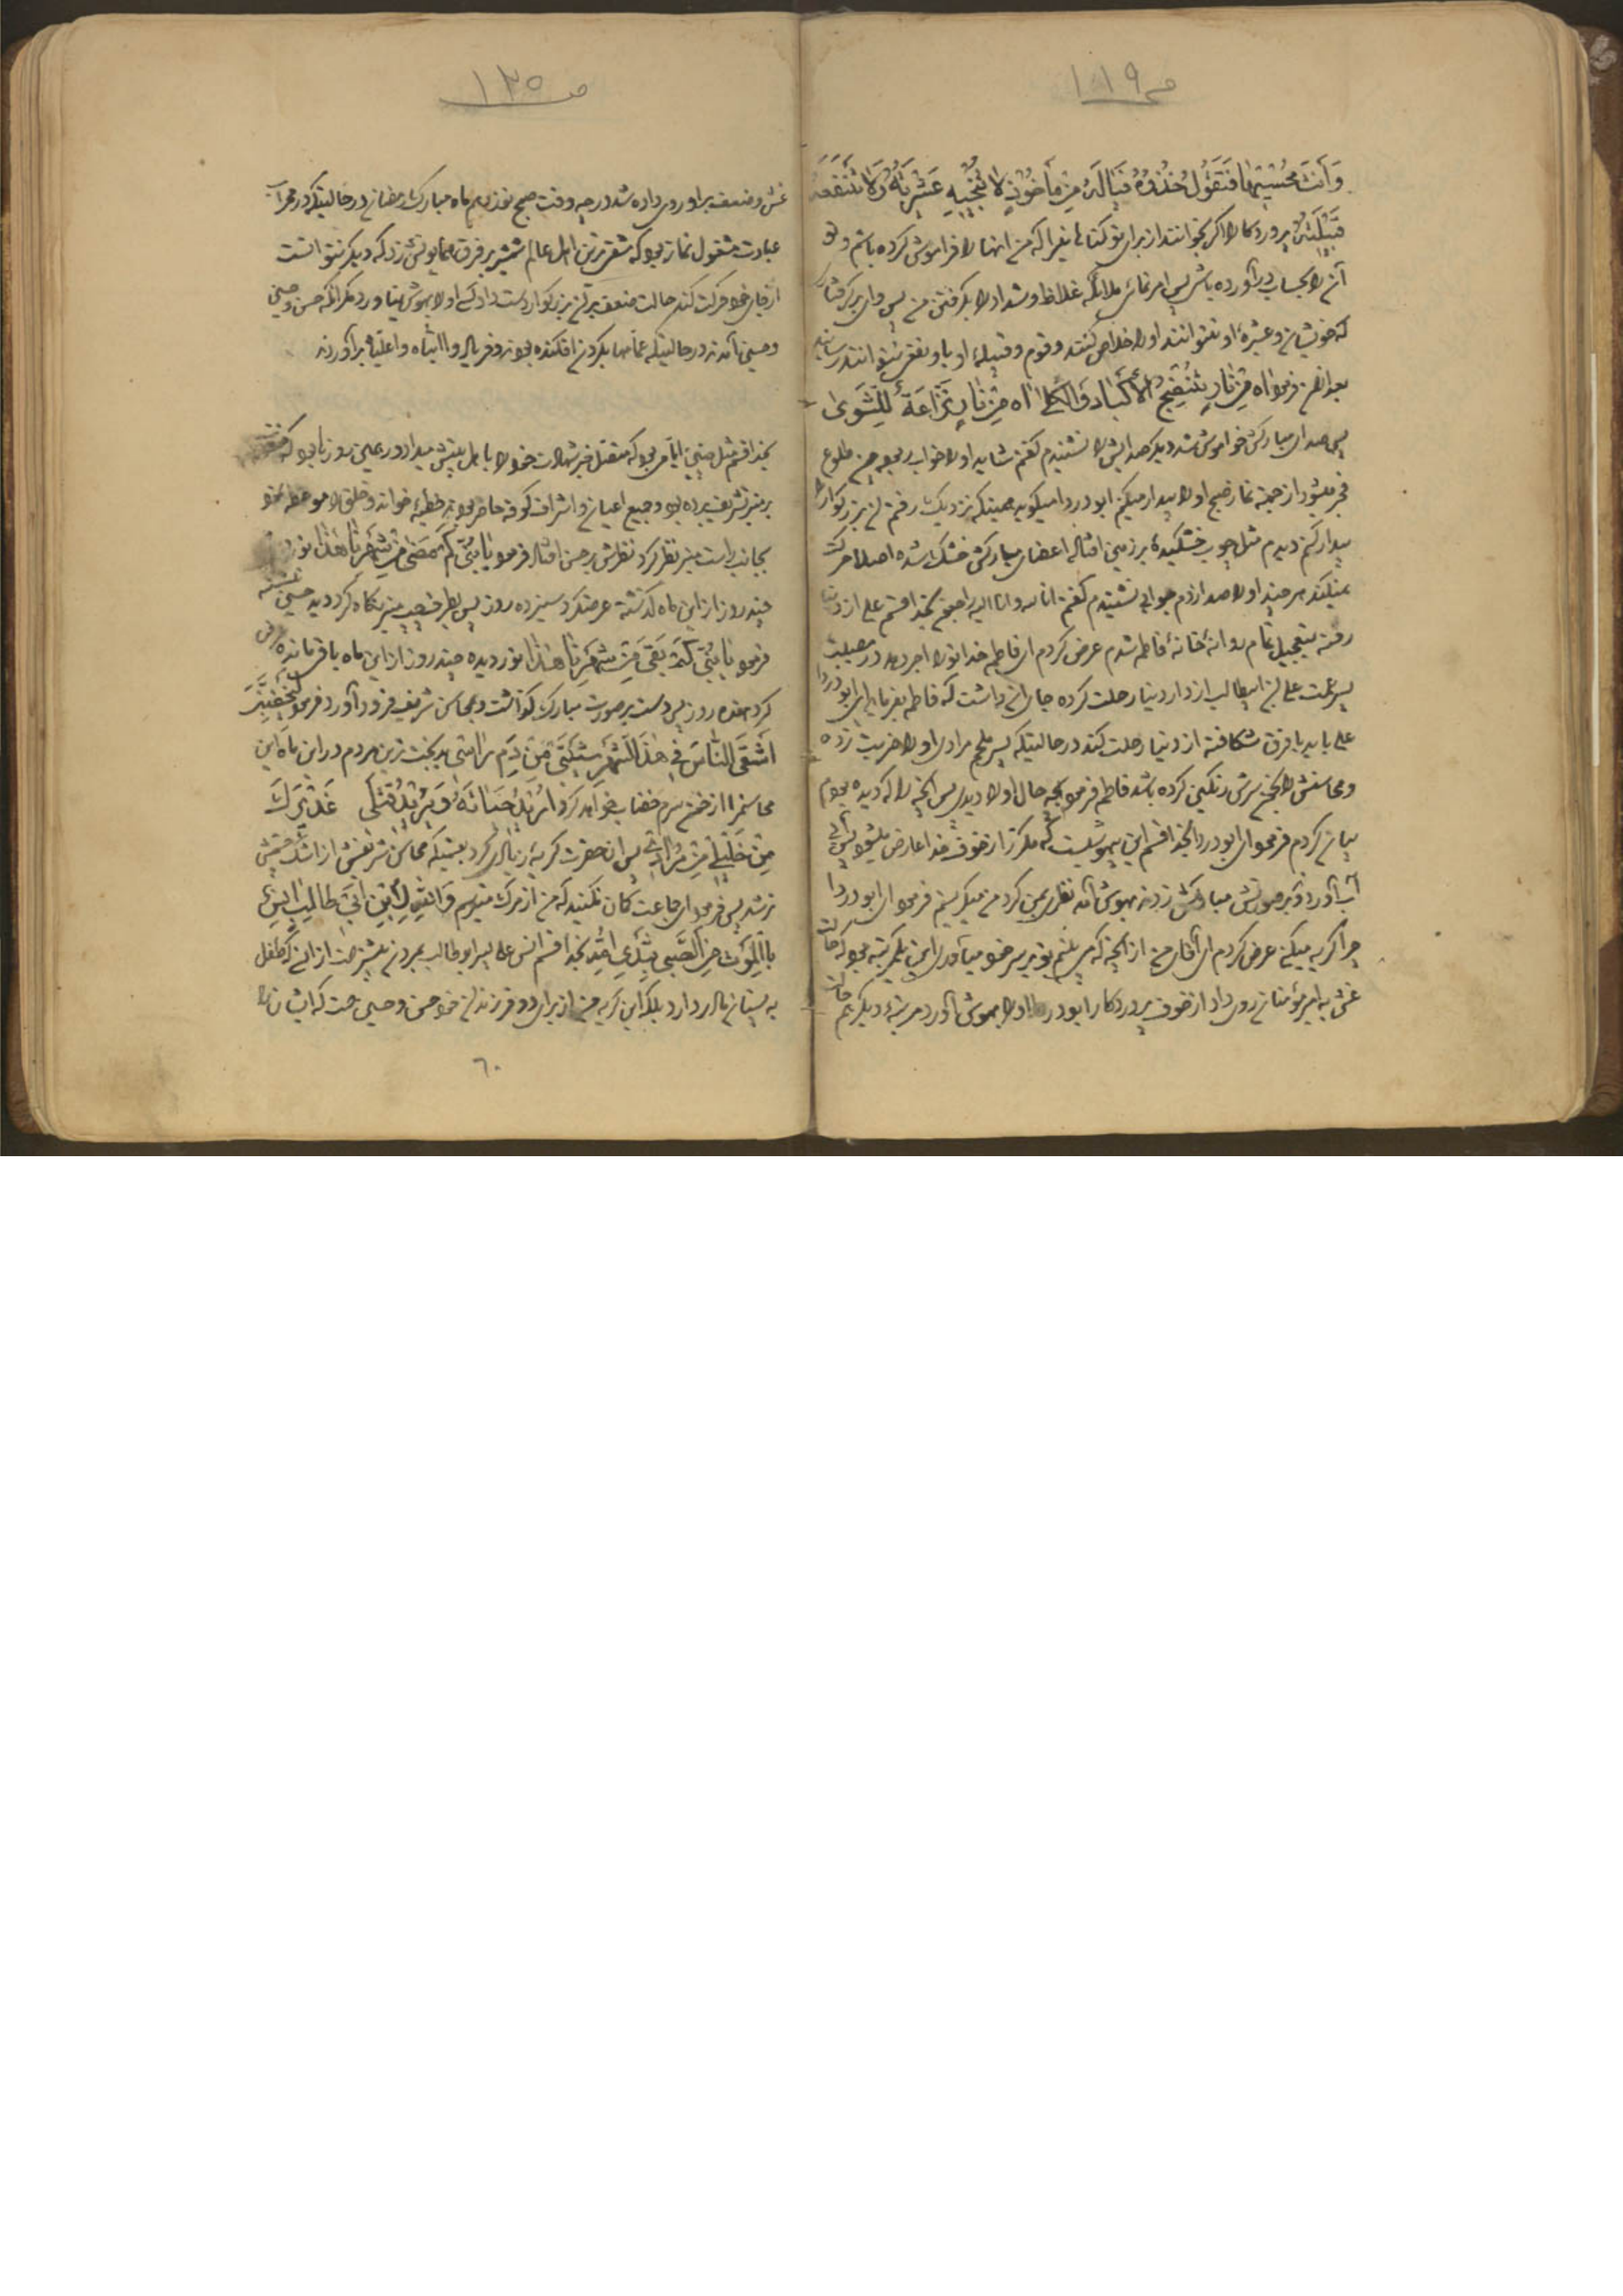 ص ۱۱۹
وَأَنْتَ مُحْصِيهَا فَتَقُولُ خُذُوهُ فَيَالَهُ مِنْ مَأخُوذٍ لَا تُنْجِيهِ عَشِيرَتُهُ وَلَا تَنْفَعُهُ
قَبِيلَتُهُ پروردكارا اكر بخوانند از براى تو كناه يرا كه من انها را فراموش كرده باشم و تو
آن را بحساب در آورده باشى پس امر نمائى ملائكه غلاظ و شداد را بكرفتن من پس واى بر كرفتار
كه خويشان و عشيرهٔ او نتوانند او را خلاص كنند و قوم و قبيلهٔ او باو نفعى نتوانند رسانيد
بعد از ان فرمود اه مِنْ نَارٍ تُنْضِجُ الْأَكْبَادَ وَالْكُلَا اه مِنْ نَارٍ نَزَّاعَةٍ لِلشَّوَى
پس صداى مباركش خواموش شد ديكر صدايش را نشنيدم كفتم شايد او را خواب ربوده چون طلوع
فجر ميشود از جهة نماز صبح او را بيدار ميكنم ابو دردا ميكويد همينكه نزديك رفتم آن بزركوار را
بيدار كنم ديدم مثل چوب خشكيدهٔ بر زمين افتاده اعضاى مباركش خشك شده اصلا حركت
نميكند هر چند او را صدا زدم جوابى نشنيدم كفتم انا لله و انا اليه راجعون بخدا قسم على از دنيا
رفته بتعجيل تمام روانهٔ خانهٔ فاطمه شدم عرض كردم اى فاطمه خدا تو را اجر دهد در مصيبت
پسر عمت على بن ابيطالب از دار دنيا رحلت كرده جا ان داشت كه فاطمه بفرمايد اى ابو دردا
على بايد با فرق شكافته از دنيا رحلت كند در حالتيكه پسر ملجم مرادى او را ضربت زده
و محاسنش را بخون سرش رنكين كرده باشد فاطمه فرمود بچه حال او را ديدى پس انچه را كه ديده بودم
بيان كردم فرمود اى ابو دردا بخدا قسم اين بيهوشيست كه مكرر از خوف خدا عارض ميشود پس آبى
آب آورده و بر صورتش مباركش زدند بهوش آمد نظرى بمن كرد من ميكريستم فرمود اى ابو دردا
چرا كريه ميكنى عرض كردم اى آقاى من از انچه كه مى بينم تو بر سر خود مياورى اين يكمرتبه بود كه حالت
غش به اميرمؤمنان روى داد از خوف پروردكار ابو دردا او را بهوش آورد مرتبهٔ ديكر هم حالت
ص ۱۲۰
غش و ضعف بر او روى داده شد در چه وقت صبح نوزدهم ماه مبارك رمضان در حالتيكه در محراب
عبادت مشغول نماز بود كه شقى ترين اهل عالم شمشير بر فرق همايونش زد كه ديكر نتوانست
از جاى خود حركت كند حالت ضعف بر آن بزركوار دست داد كسى او را بهوش نياورد مكر انكه حسن و حسين
و حسين آمدند در حالتيكه عمامها بكردن افكنده بودند و فرياد وا ابتاه وا عليا بر آوردند
بخدا قسم مثل چنين ايامى بود كه متصل خبر شهادت خود را باهل بيتش ميداد در همين روزها بود كه
بر منبر تشريف برده بود و جميع اعيان و اشراف كوفه حاضر بودند خطبهٔ خواند و خلق را موعظه نمود
بجانب راست منبر نظر كرد نظرش بر حسن افتاد فرمود يَا بُنَيَّ كَمْ مَضَى مِنْ شَهْرِنَا هٰذَا نور
چند روز از اين ماه گذشته عرضكرد سيزده روز پس بطرف چپ منبر نكاه كرد ديد حسين نشسته
فرمود يَا بُنَيَّ كَمْ بَقِيَ مِنْ شَهْرِنَا هٰذَا نور ديده چند روز از اين ماه باقى مانده عرض
كرد هفده روز پس دست بر صورت مبارك گذاشت و محاسن شريف فرود آورد فرمود لَيَخْضِبَنَّ
أَشْقَى النَّاسِ فِي هٰذَا الشَّهْرِ شَيْبَتِي مِنْ دَمِ رَاسِي بدبخت ترين مردم در اين ماه اين
محاسنم را از خون سرم خضاب خواهد كرد أُرِيدُ حَيَاتَهُ وَيُرِيدُ قَتْلِي غَدِيرَكَ
مِنْ خَلِيلِكَ مِنْ مُرَادِي پس ان حضرت كريهٔ زيادى كرد بحيثيكه محاسن شريفش از اشك چشمش
تر شد پس فرمود اى جماعت كمان نكنيد كه من از مرك ميترسم وَاللّٰهِ لَابْنُ أَبِي طَالِبٍ آنَسُ
بِالْمَوْتِ مِنَ الصَّبِيِّ بِثَدْيِ أُمِّهِ بخدا قسم انس على پسر ابو طالب بمردن بيشتر است از انس طفل
به پستان مادر دارد بلكه اين كريه من از براى دو فرزندان خود حسن و حسين است كه ايشان را
٦٠